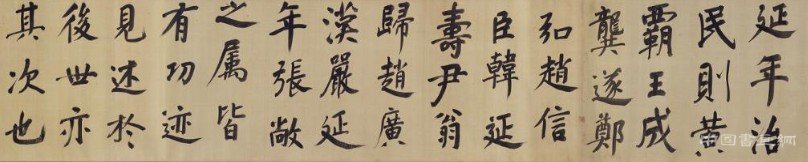 延年治
民則黃
霸王成
龔遂鄭
弘趙信
臣韓延
壽尹翁
歸趙廣
漢嚴延
年張敞
之屬皆
有功迹
見述於
後世亦
其次也